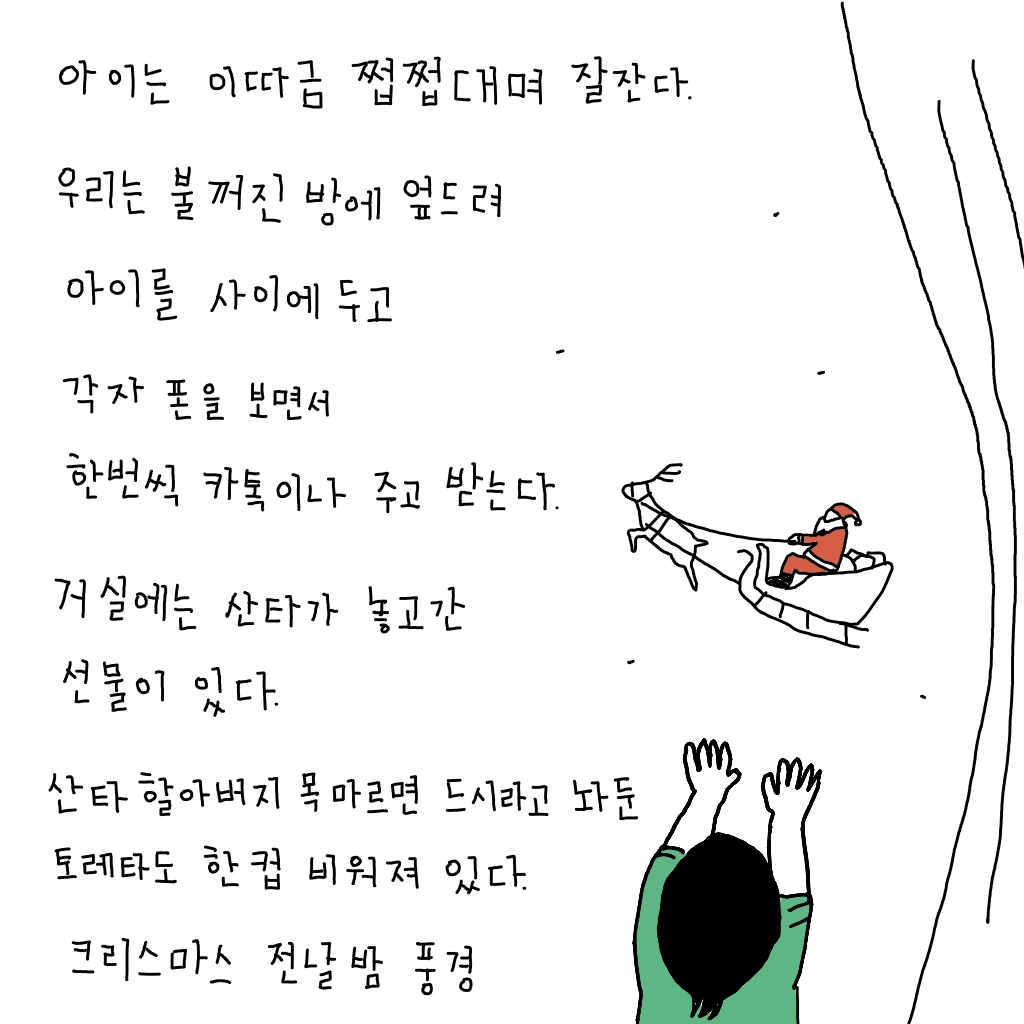 아이는 이따금 쩝쩝대며 잘잔다.
우리는 불 꺼진 방에 엎드려
아이를 사이에 두고
각자 폰을 보면서
한번씩 카톡이나 주고 받는다.
거실에는 산타가 놓고간
선물이 있다.
산타 할아버지 목 마르면 드시라고 놔둔
토레타도 한 컵 비워져 있다.
크리스마스 전날 밤 풍경